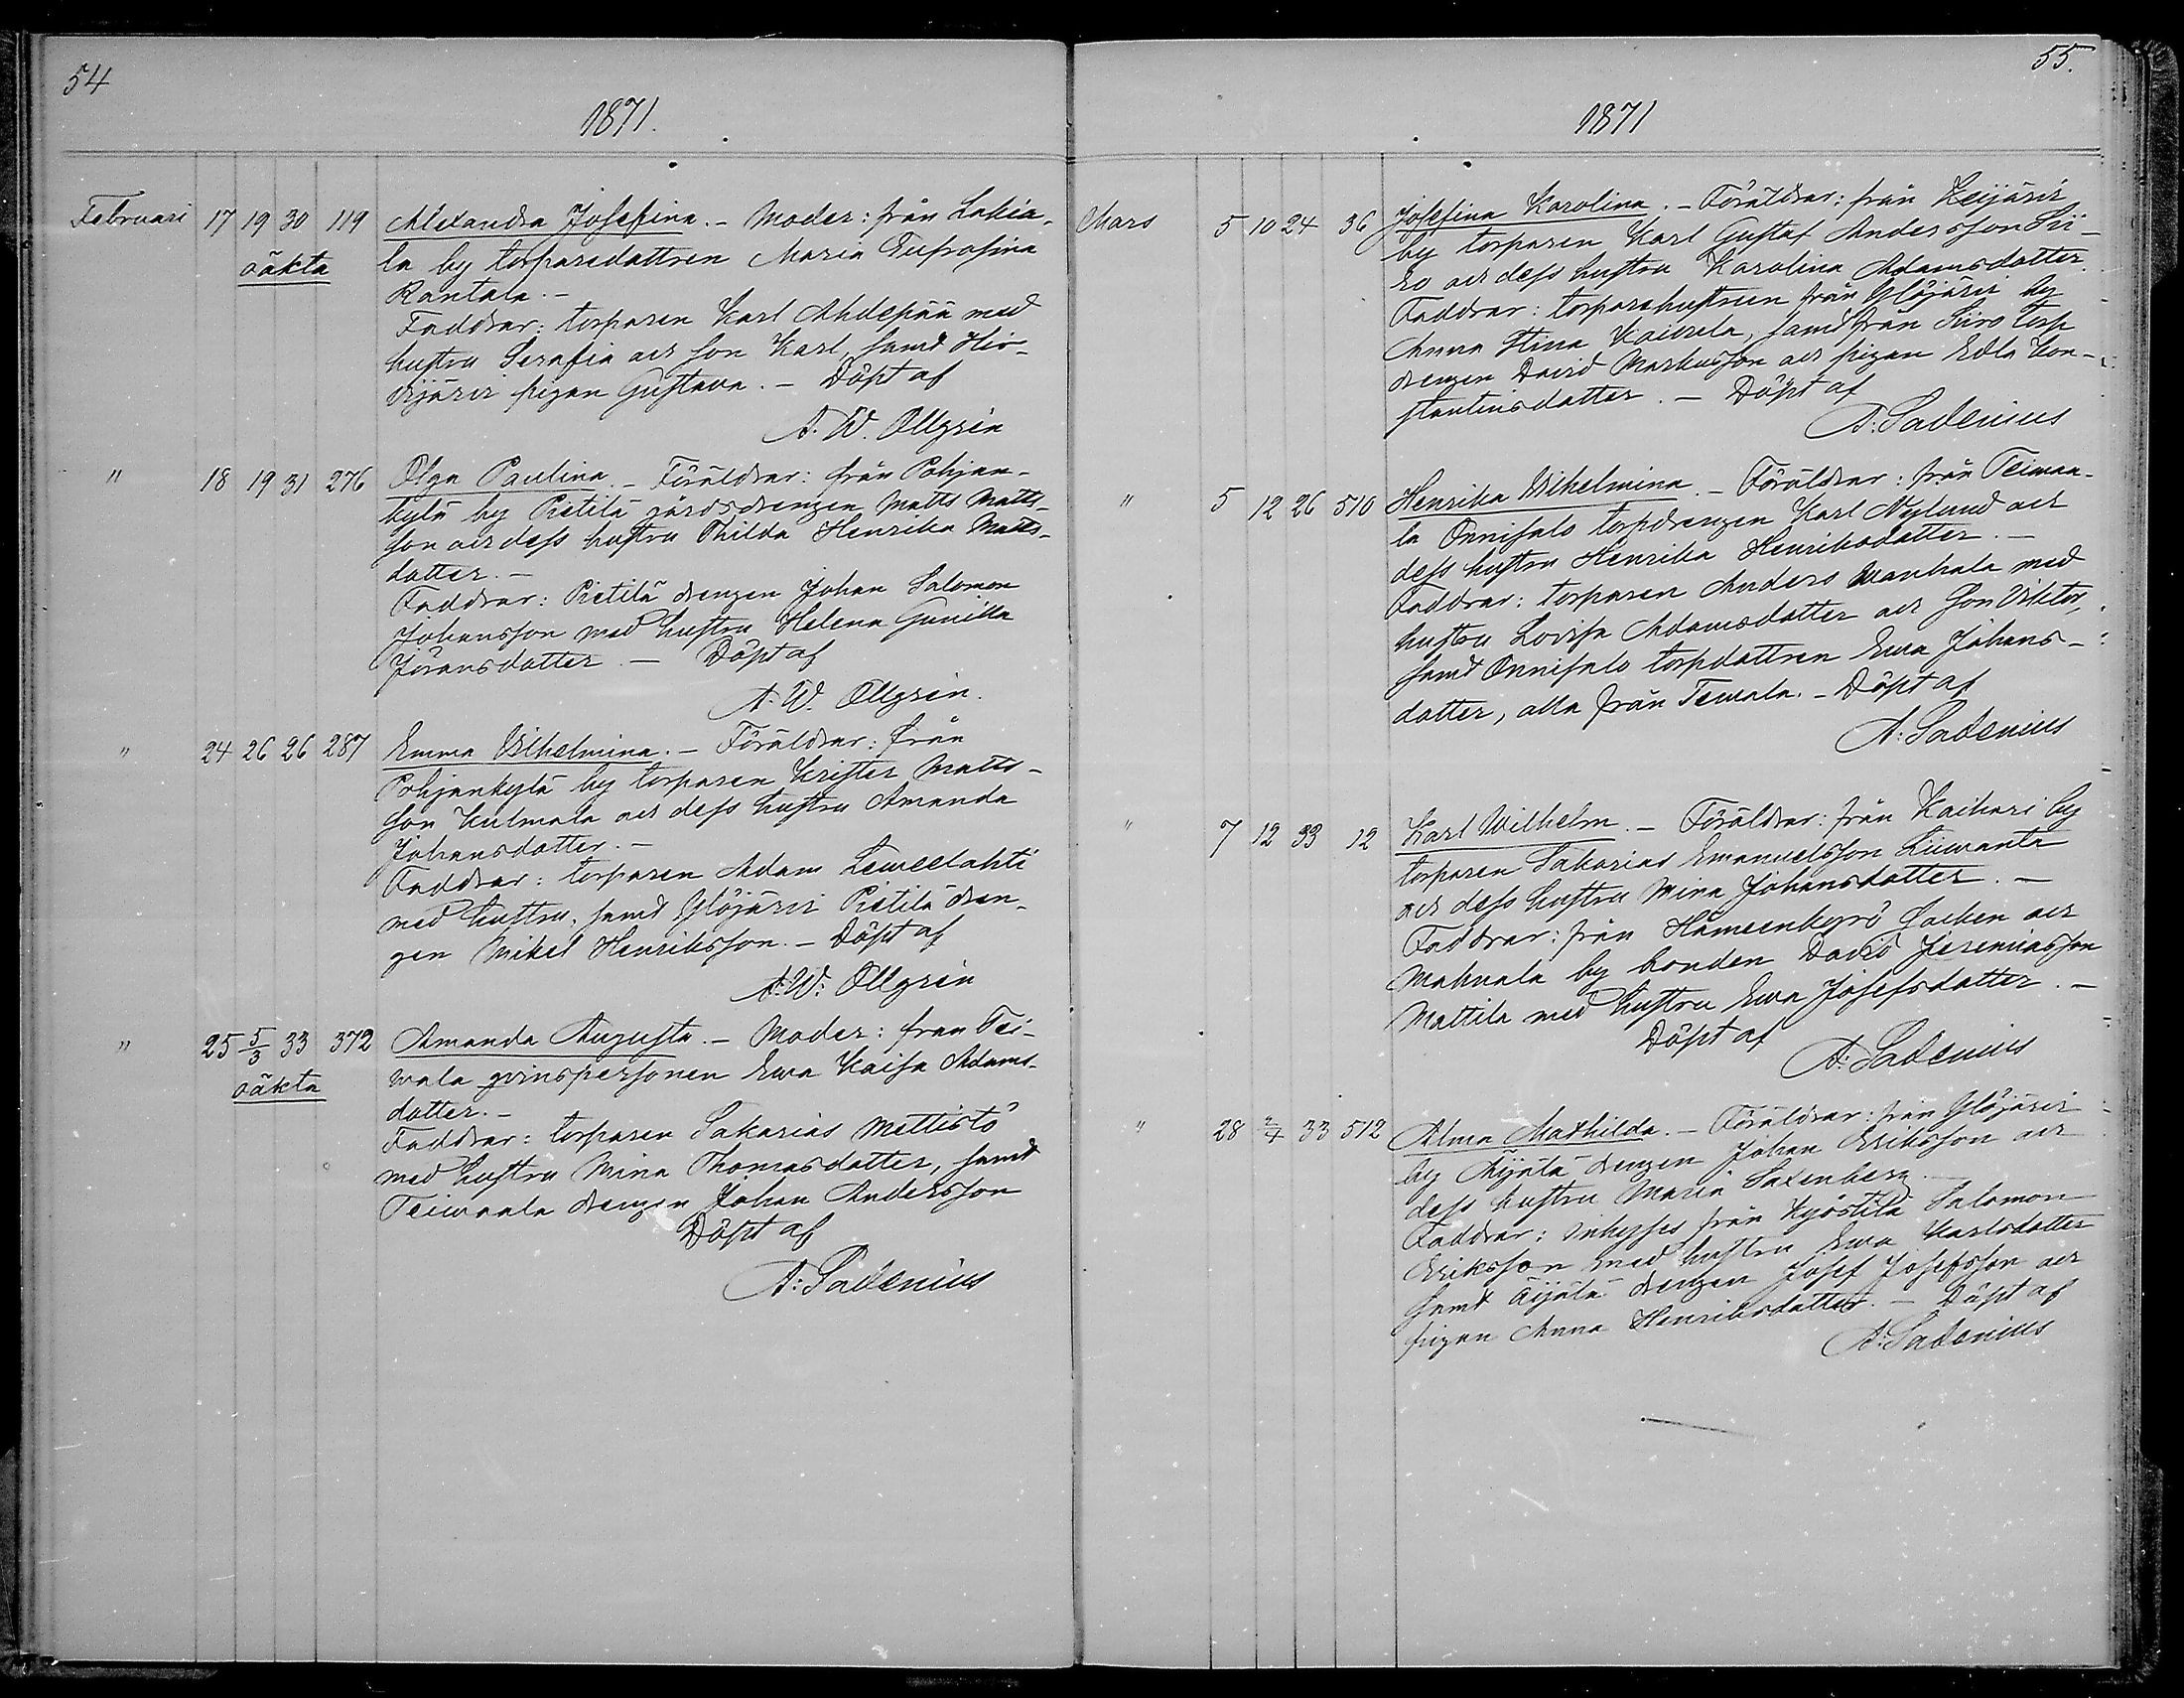 54
1871.
Februari 17 19 30 119 Alexandra Josefina. - Moder: från Lakia-
oäkta la by torparedattren Maria Eufrosina
Rantala. -
Faddrar: torparen Karl Ahdepää med
hustru Serafia och son Karl, samt Hir-
vijärvi pigan Gustava. - Döpt af
A. W. Ollgrén
" 18 19 31 276 Olga Paulina. - Föräldrar: från Pohjan-
kylä by Pietilä gårdsdrengen Matts Matts-
son och dess hustru Thilda Henrika Matts-
dotter. -
Faddrar: Pietilä drengen Johan Salomon
Johansson med hustru Helena Gunilla
Göransdotter. - Döpt af
A. W. Ollgrén.
" 24 26 26 287 Emma Wilhelmina. - Föräldrar: från
Pohjankylä by torparen Krister Matts-
son Kulmala och dess hustru Amanda
Johansdotter. -
Faddrar: torparen Adam Leweelahti
med hustru, samt Ylöjärvi Pietilä dren-
gen Mikel Henriksson. - Döpt af
A. W. Ollgrén
" 25 5/3 33 372 Amanda Augusta. - Moder: från Tei-
oäkta wala qvinspersonen Ewa Kaisa Adams-
dotter. -
Faddrar: torparen Sakarias Mettistö
med hustru Mina Thomasdotter, samt
Teiwaala drengen Johan Andersson
Döpt af
A: Sadenius
55.
1871
Mars 5 10 24 36 Josefina Karolina. - Föräldrar: från Keijärvi
by torparen Karl Gustaf Andersson Sii-
ro och dess hustru Karolina Adamsdotter.
Faddrar: torparehustrun från Ylöjärvi by
Anna Stina Kaivola, samt från Siiro torp
drengen David Markusson och pigan Edla Kon-
stantinsdotter. - Döpt af
A: Sadenius
" 5 12 26 510 Henrika Wilhelmina. - Föräldrar: från Teiwaa-
la Onnisalo torpdrengen Karl Nylund och
dess hustru Henrika Henriksdotter. -
Faddrar: torparen Anders Wanhala med
hustru Lovisa Adamsdotter och son Viktor,
samt Onnisalo torpdottren Ewa Johans-
dotter, alla från Teiwala. - Döpt af
A: Sadenius
" 7 12 33 12 Karl Wilhelm. - Föräldrar: från Kaihari by
torparen Sakarias Emanuelsson Liuvanta
och dess hustru Mina Johansdotter. -
Faddrar: från Hämeenkyrö socken och
Mahnala by bonden David Jeremiasson
Mattila med hustru Ewa Josefsdotter. -
Döpt af
A: Sadenius
" 28 2/4 33 512 Alma Mathilda. - Föräldrar: från Ylöjärvi
by Äijälä drengen Johan Eriksson och
dess hustru Maria Saxenberg. -
Faddrar: inhyses från Kyöstilä Salomon
Eriksson med hustru Ewa Karlsdotter
samt Äijälä drengen Josef Josefsson och
pigan Anna Henriksdotter. - Döpt af
A: Sadenius